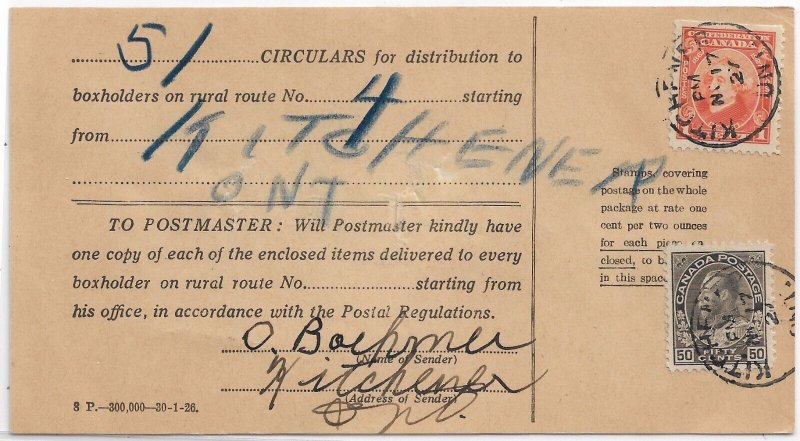 51 CIRCULARS for distribution to
boxholders on rural route No. 4 starting
from KITCHENER
ONT
TO POSTMASTER: Will Postmaster kindly have
one copy of each of the enclosed items delivered to every
boxholder on rural route No. starting from
his office, in accordance with the Postal Regulations.
O. Boehmer
(Name of Sender)
Kitchener
(Address of Sender)
Ont.
8 P.—300,000—30-1-26.
CONFEDERATION
CANADA
1
KITCHENER
ONT
PM
17
27
Stamps, covering
postage on the whole
package at rate one
cent per two ounces
for each
closed, to
in this space
CANADA POSTAGE
50 FIFTY 50
CENTS
PM
17
27